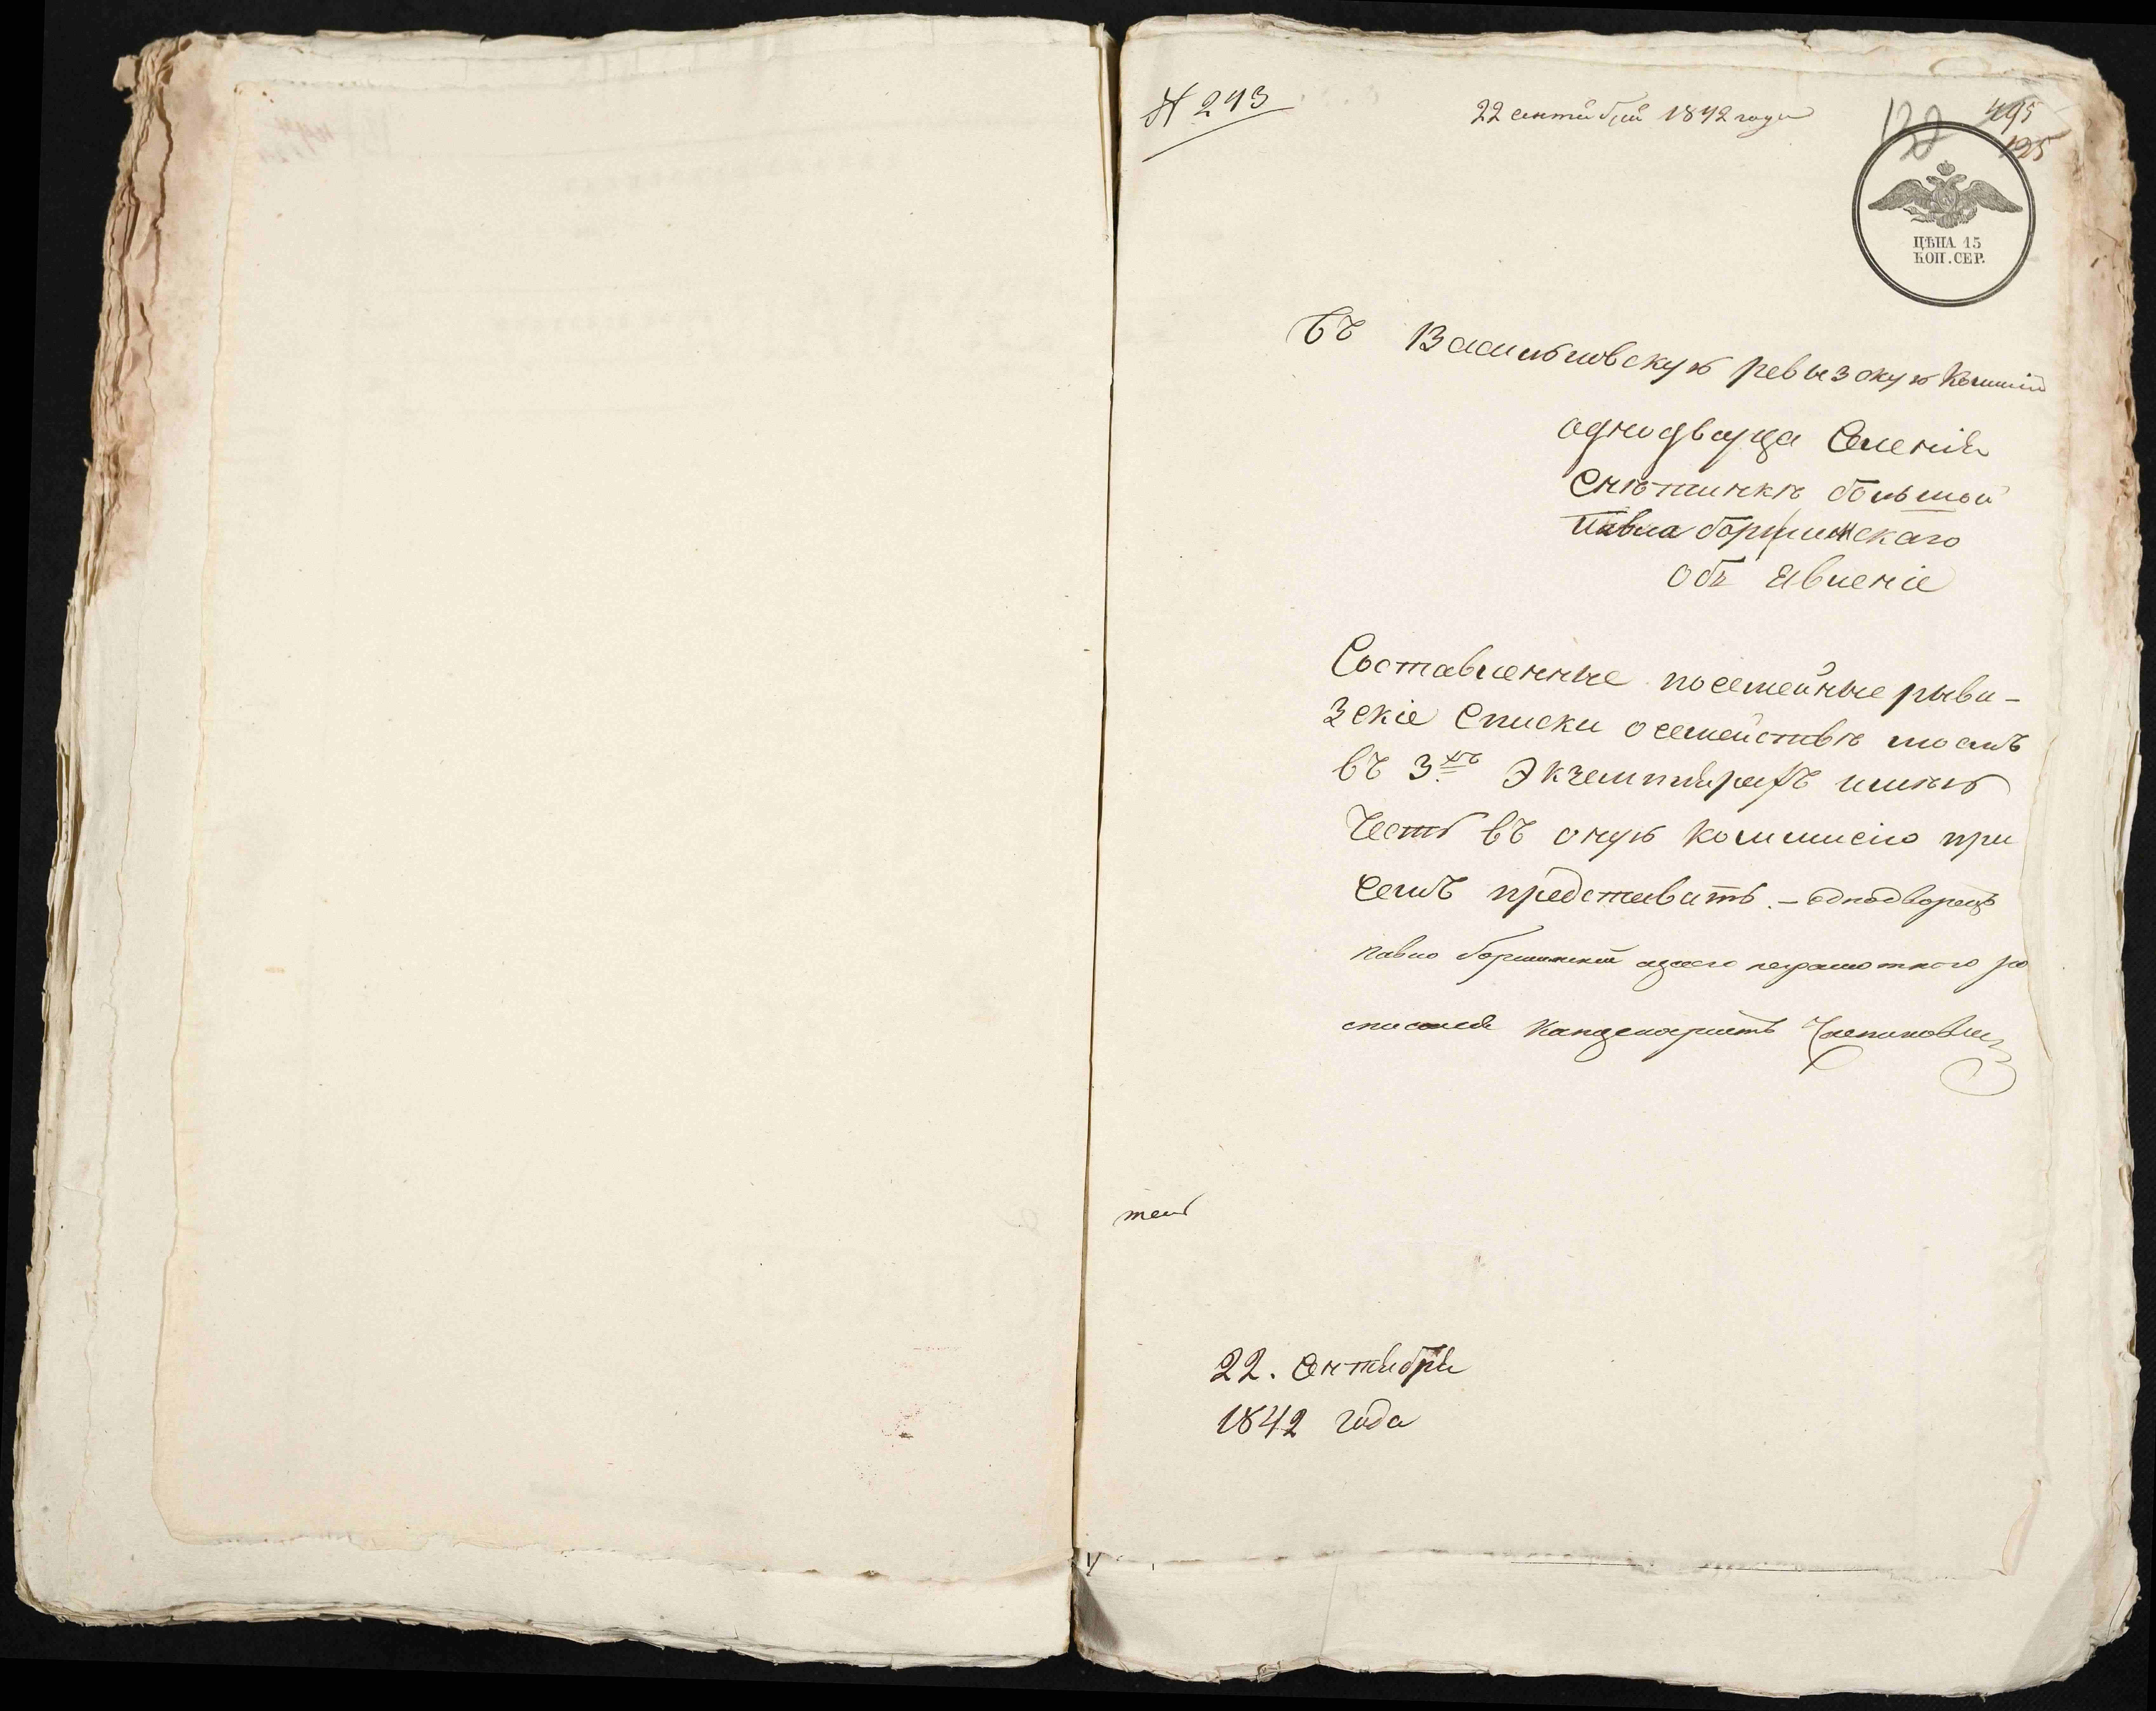 № 293
22 сентября 1842 года
132
495
125
ЦѢНА 15
КОП. СЕР.
Въ Васильковскую ревызскую Комисію
однодворца Селенія
Снѣтинки большой
Павла боршинскаго
Объ Явленіе
Составленные посемейные рыви-
зскіе Списки о семействѣ моемъ
въ 3хъ Экземплярахъ имѣю
Честь въ оную Коммисію при
семъ представить. – однодворецъ
павло боршинскій а за его неграмотного ро
списался Канцеляристъ
22. Сентября
1842 года